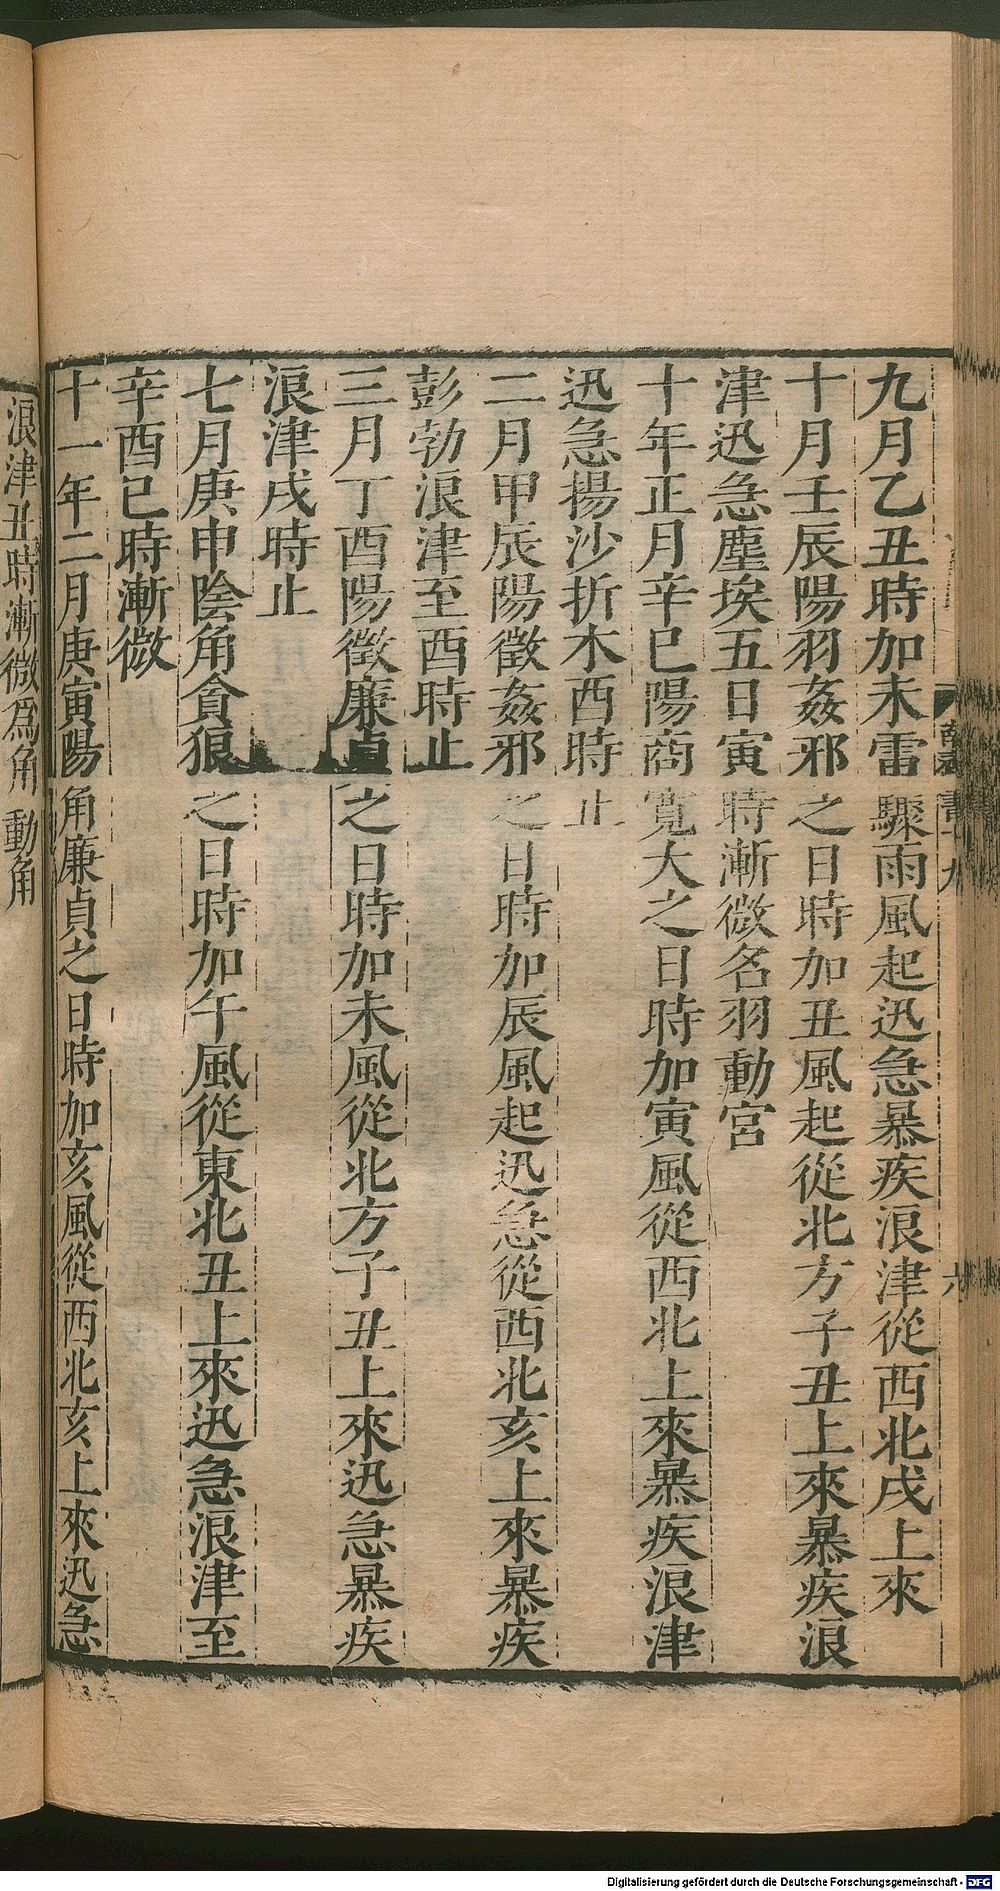 九月乙丑時加未雷驟雨風起迅急暴疾浪津從西北戌上來
十月壬辰陽羽姦邪之日時加丑風起從北方子丑上來暴疾浪
津迅急塵埃五日寅時漸微名羽動宮
十年正月辛巳陽商寬大之日時加寅風從西北上來暴疾浪津
迅急揚沙折木酉時止
二月甲辰陽徵姦邪之日時加辰風起迅急從西北亥上來暴疾
彭勃浪津至酉時止
三月丁酉陽徵廉貞之日時加未風從北方子丑上來迅急暴疾
浪津戌時止
七月庚申陰角貪狼之日時加午風從東北丑上來迅急浪津至
辛酉巳時漸微
十一年二月庚寅陽角廉貞之日時加亥風從西北亥上來迅急
浪津丑時漸微為角動角
六
Digitalisierung gefördert durch die Deutsche Forschungsgemeinschaft - DFG